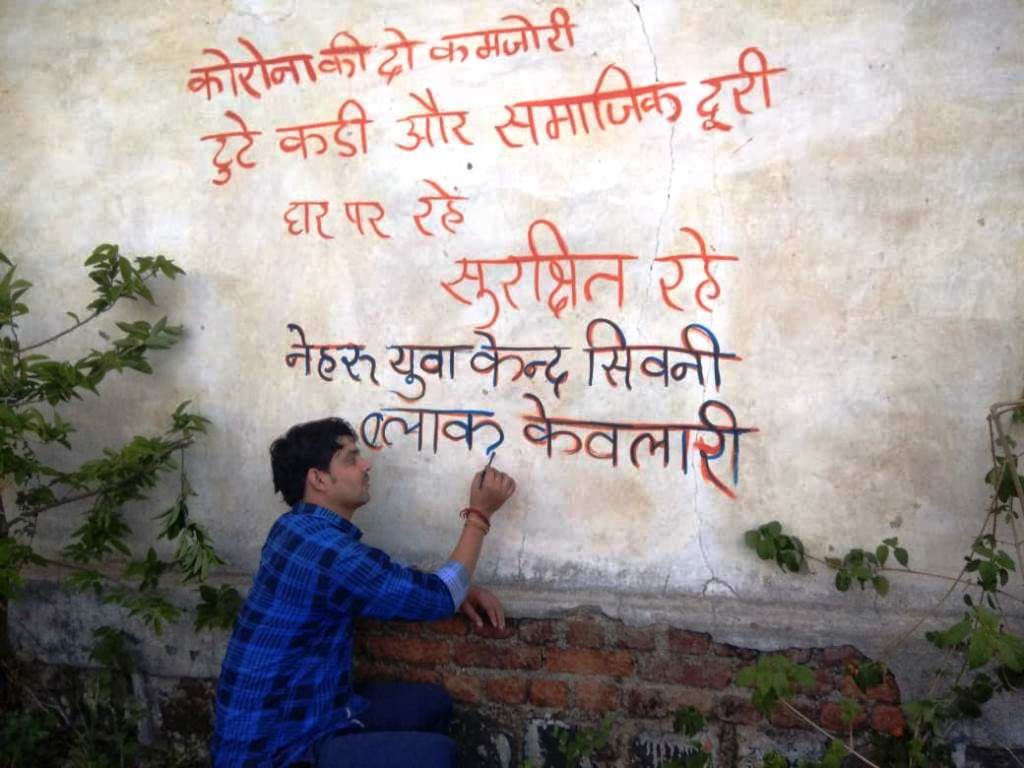 कोरोना की दो कमजोरी
टुटे कडी और समाजिक दूरी
घर पर रहें
सुरक्षित रहें
नेहरू युवा केन्द्र सिवनी
ब्लाक केवलारी